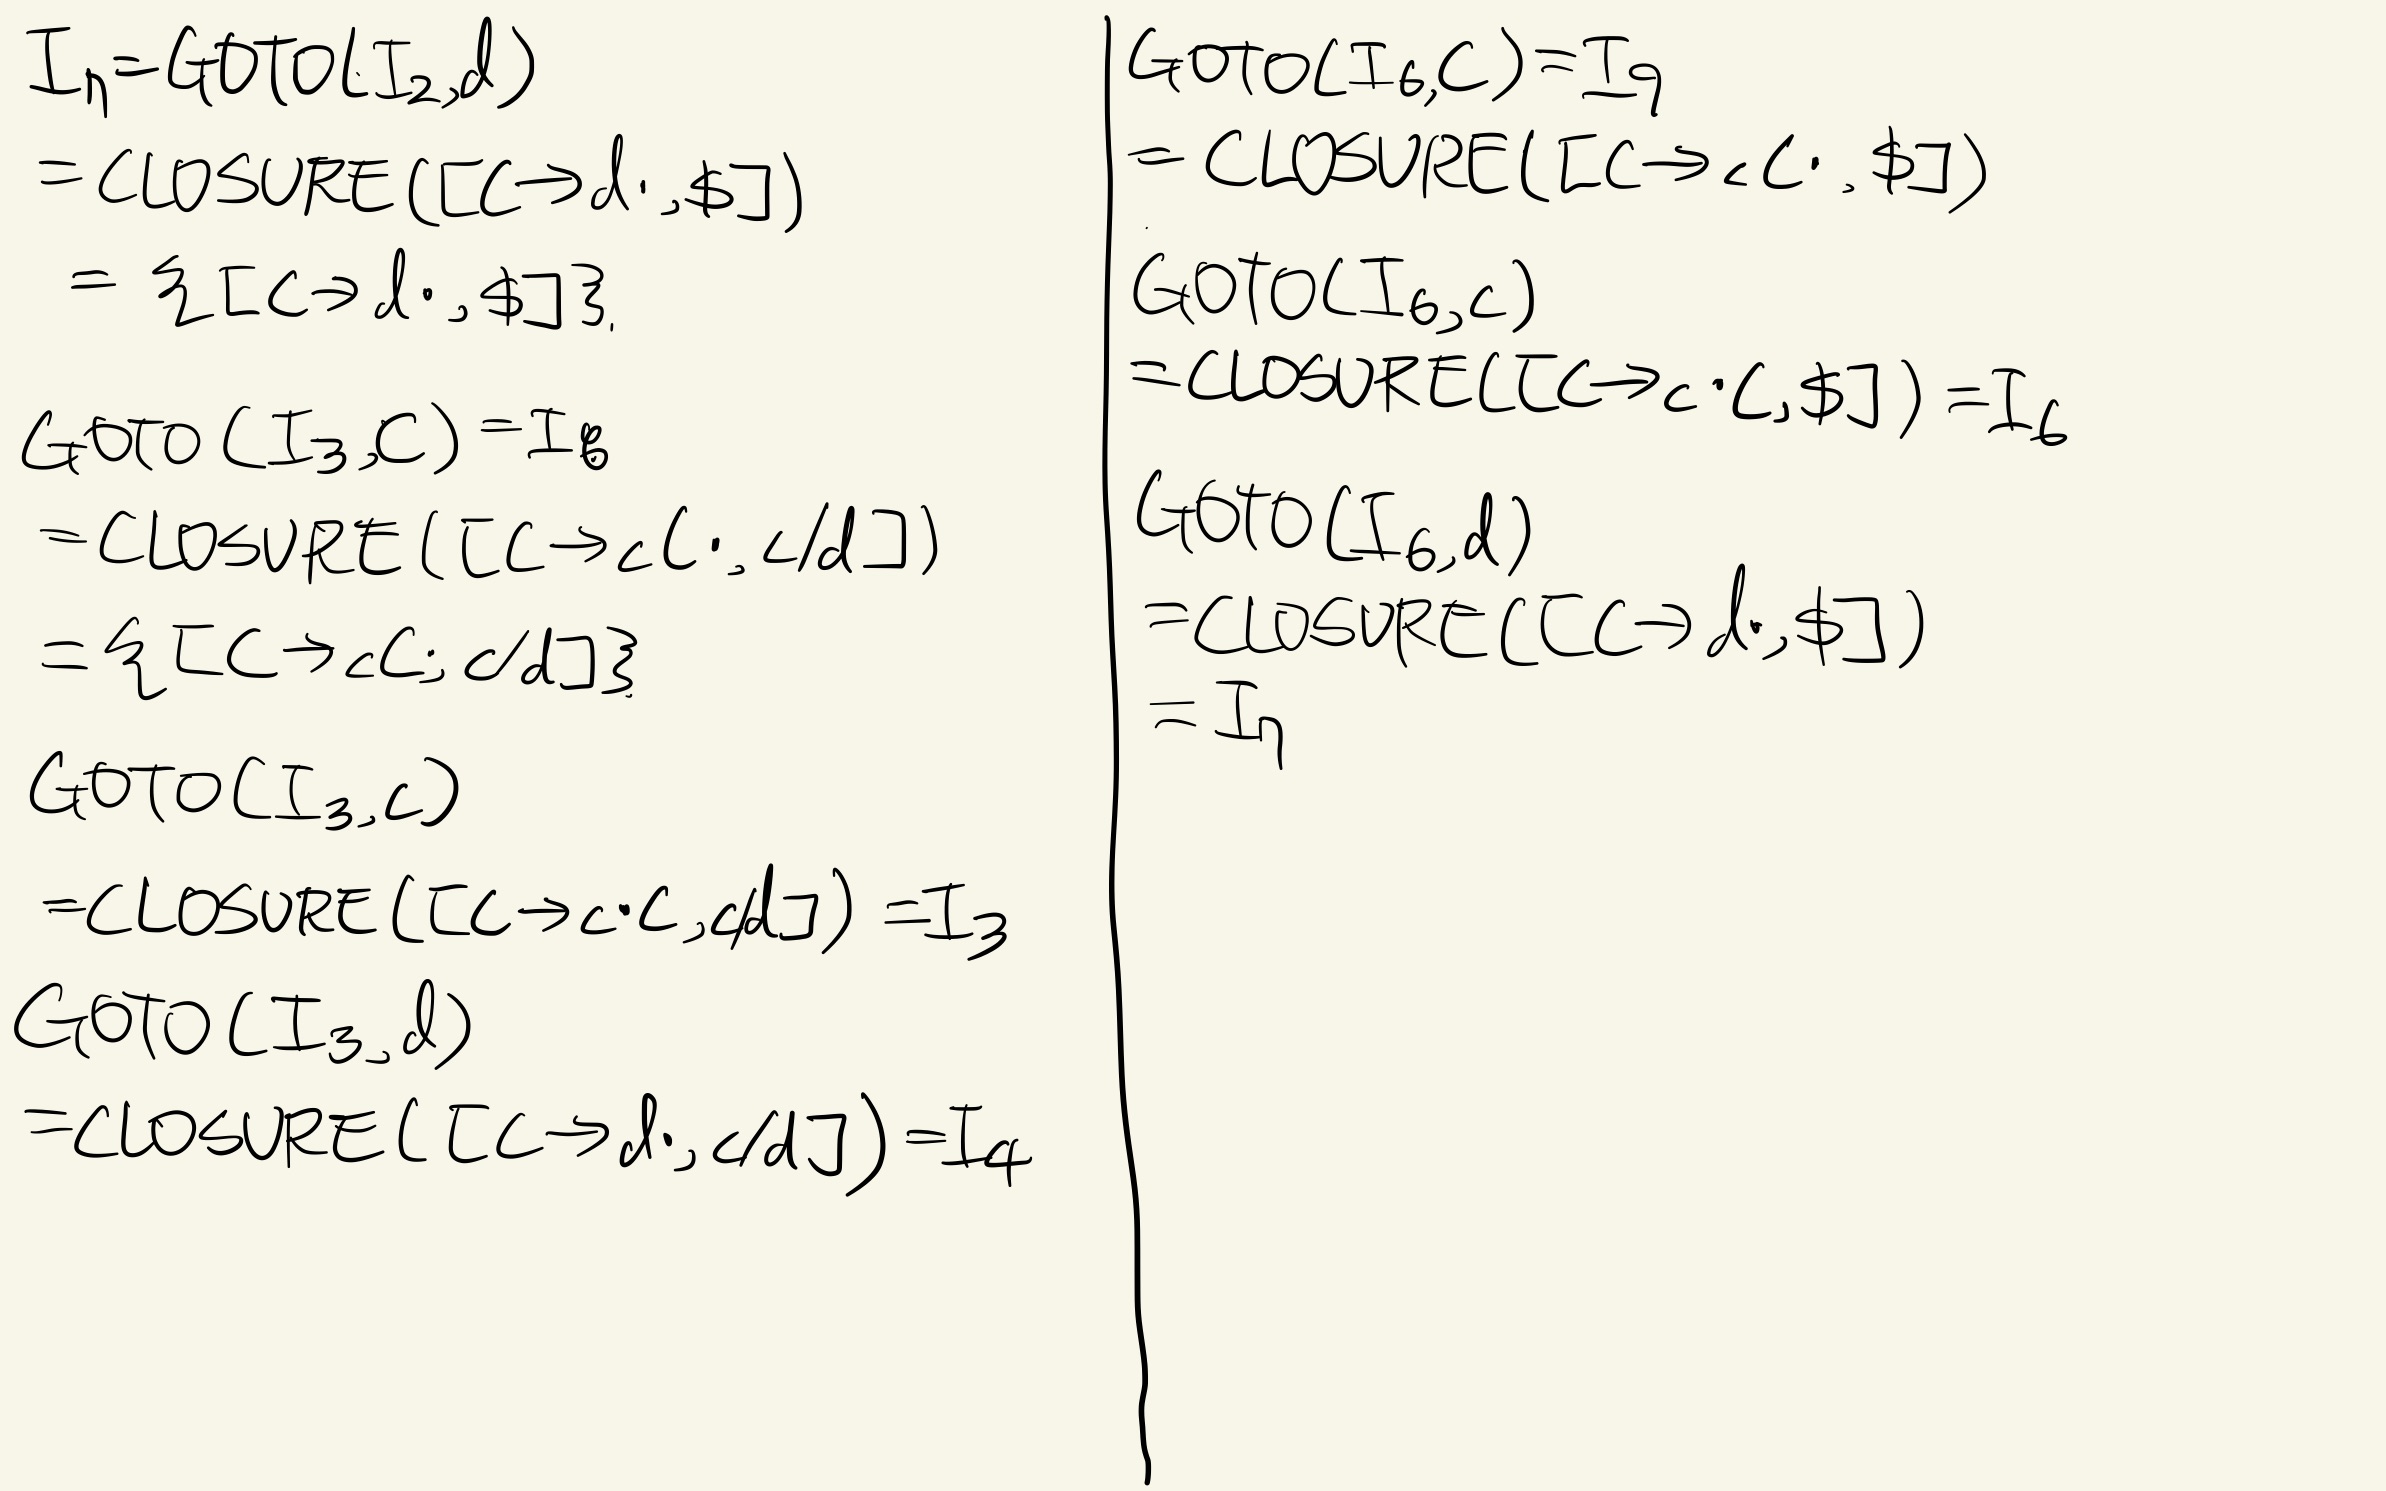 I₇=GOTO(I₂,d)
=CLOSURE([C→d·,$])
={[C→d·,$]}.
GOTO(I₃,C)=I₈
=CLOSURE([C→cC·,c/d])
={[C→cC·,c/d]}
GOTO(I₃,c)
=CLOSURE([C→c·C,c/d])=I₃
GOTO(I₃,d)
=CLOSURE([C→d·,c/d])=I₄
GOTO(I₆,C)=I₉
=CLOSURE([C→cC·,$])
GOTO(I₆,c)
=CLOSURE([C→c·C,$])=I₆
GOTO(I₆,d)
=CLOSURE([C→d·,$])
=I₇